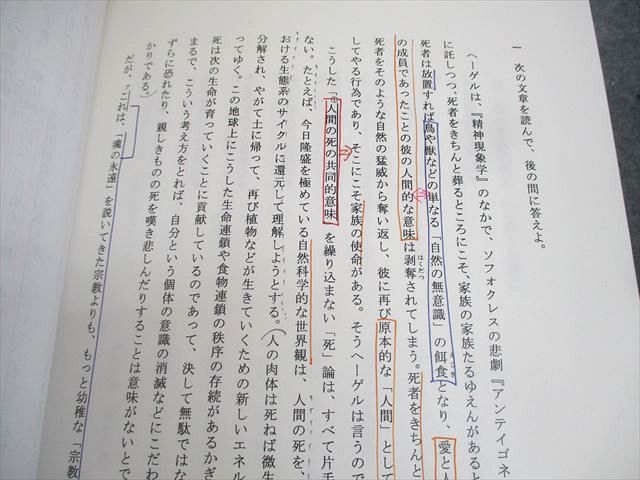 一　次の文章を読んで、後の問に答えよ。
ヘーゲルは、『精神現象学』のなかで、ソフォクレスの悲劇『アンティゴネ
に託しつつ、死者をきちんと葬るところにこそ、家族の家族たるゆえんがあると
死者は放置すれば鳥や獣などの単なる「自然の無意識」の餌食となり、愛と人
の成員であったことの彼の人間的な意味は剥奪されてしまう。死者をきちんと
死者をそのような自然の猛威から奪い返し、彼に再び原本的な「人間」として
してやる行為であり、そこにこそ家族の使命がある。そうヘーゲルは言うので
こうした「人間の死の共同的意味」を繰り込まない「死」論は、すべて片手
ない。たとえば、今日隆盛を極めている自然科学的な世界観は、人間の死を、
おける生態系のサイクルに還元して理解しようとする。（人の肉体は死ねば微生
分解され、やがて土に帰って、再び植物などが生きていくための新しいエネル
ってゆく。この地球上にこうした生命連鎖や食物連鎖の秩序の存続があるかぎ
死は次の生命が育っていくことに貢献しているのであって、決して無駄ではな
まるで、こういう考え方をとれば、自分という個体の意識の消滅などにこだわ
ずらに恐れたり、親しきものの死を嘆き悲しんだりすることは意味がないとで
かりである。）
だが、これは、「魂の永遠」を説いてきた宗教よりも、もっと幼稚な「宗教